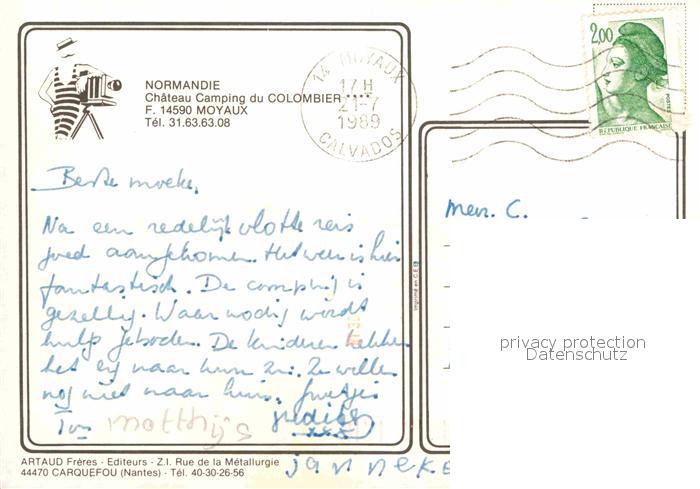 NORMANDIE
Château Camping du COLOMBIER
F. 14590 MOYAUX
Tél. 31.63.63.08
14 MOYAUX
17 H
21-7
1989
CALVADOS
2,00
POSTES
REPUBLIQUE FRANÇAISE
Beste moeke,
Na een redelijk vlotte reis
goed aangekomen. Het weer is hier
fantastisch. De camping is
gezellig. Waar nodig wordt
hulp geboden. De kinderen hebben
het erg naar hun zin. Ze willen
nog niet naar huis. Groetjes
Ton matthijs
xxx
janneke
Mevr. C.
Imprimé en C.E.E
privacy protection
Datenschutz
ARTAUD Frères - Editeurs - Z.I. Rue de la Métallurgie
44470 CARQUEFOU (Nantes) - Tél. 40-30-26-56